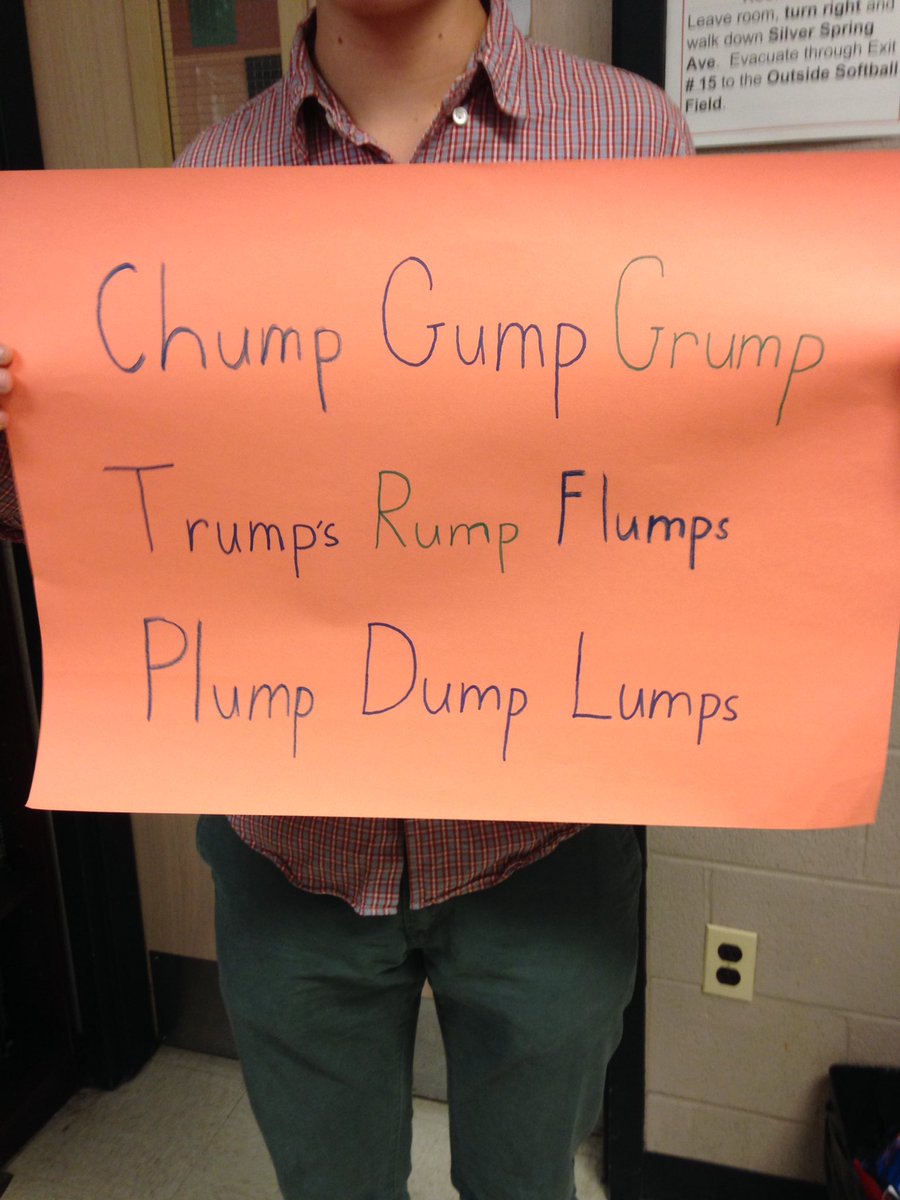 Leave room, turn right and
walk down Silver Spring
Ave. Evacuate through Exit
# 15 to the Outside Softball
Field.
Chump Gump Grump
Trump's Rump Flumps
Plump Dump Lumps